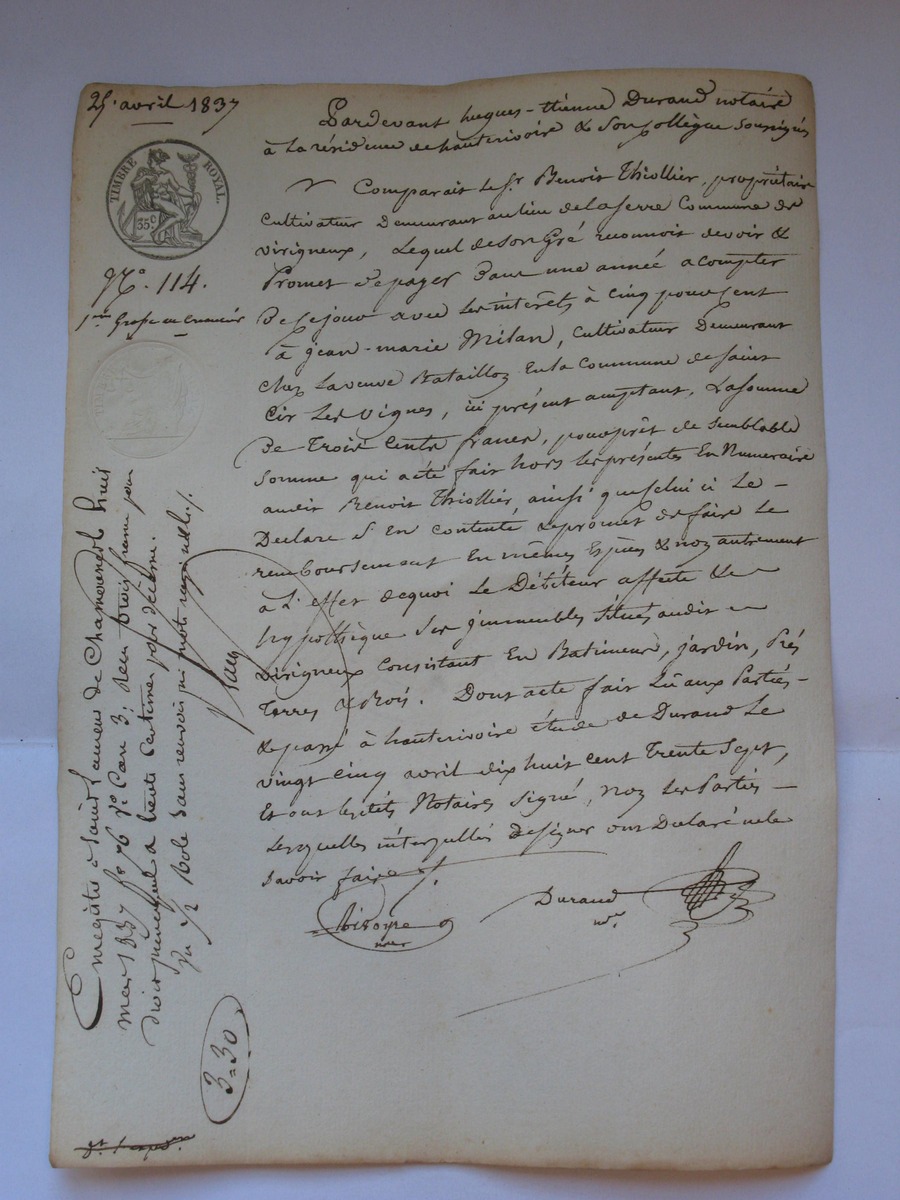 25 avril 1837
TIMBRE ROYAL.
35c
N° 114.
1ère Grosse au créancier
Pardevant hugues-étienne Durand notaire
à La résidence de hauterivoire & Son collègue Soussignés
Comparait le Sr Benoit Thiollier, propriétaire
cultivateur Demeurant au lieu de Laserre Commune de
virigneux, Lequel de Son Gré reconnoit devoir &
Promet de payer Dans une année a compter
De ce jour avec Les intérêts à Cinq pour Cent
à jean-marie Milan, cultivateur Demeurant
chez La veuve Bataillon En la Commune de Saint
Cir Les vignes, ici présent acceptant, La Somme
De Trois Cents francs, pour prêt de Semblable
Somme qui a été fait hors les présentes En Numéraire
audit Benoit Thiollier, ainsi que celui ci Le
Déclare S'En contente & promet de faire Le
remboursement En mêmes Espèces & non autrement
à L'effet de quoi Le Débiteur affecte &
hypothèque Ses immeubles Situés audit
virigneux Consistant En Batimens, jardin, Prés
Terres & Bois. Dont acte fait Lû aux Parties
& passé à hauterivoire étude de Durand Le
vingt cinq avril dix huit cent Trente Sept,
Et ont lesdits Notaires Signé, non Les Parties
Lesquelles interpellées de Signer ont Déclaré ne le
Savoir faire
Durand
nre
Enregistré à Saint Laurent de Chamousset le huit
mai 1837 fo 76 Vo Case 3; reçu trois francs pour
droit principal & trente centimes pour décime.
Du Rôle Sans renvoi ni mots rayés nuls.
3=30